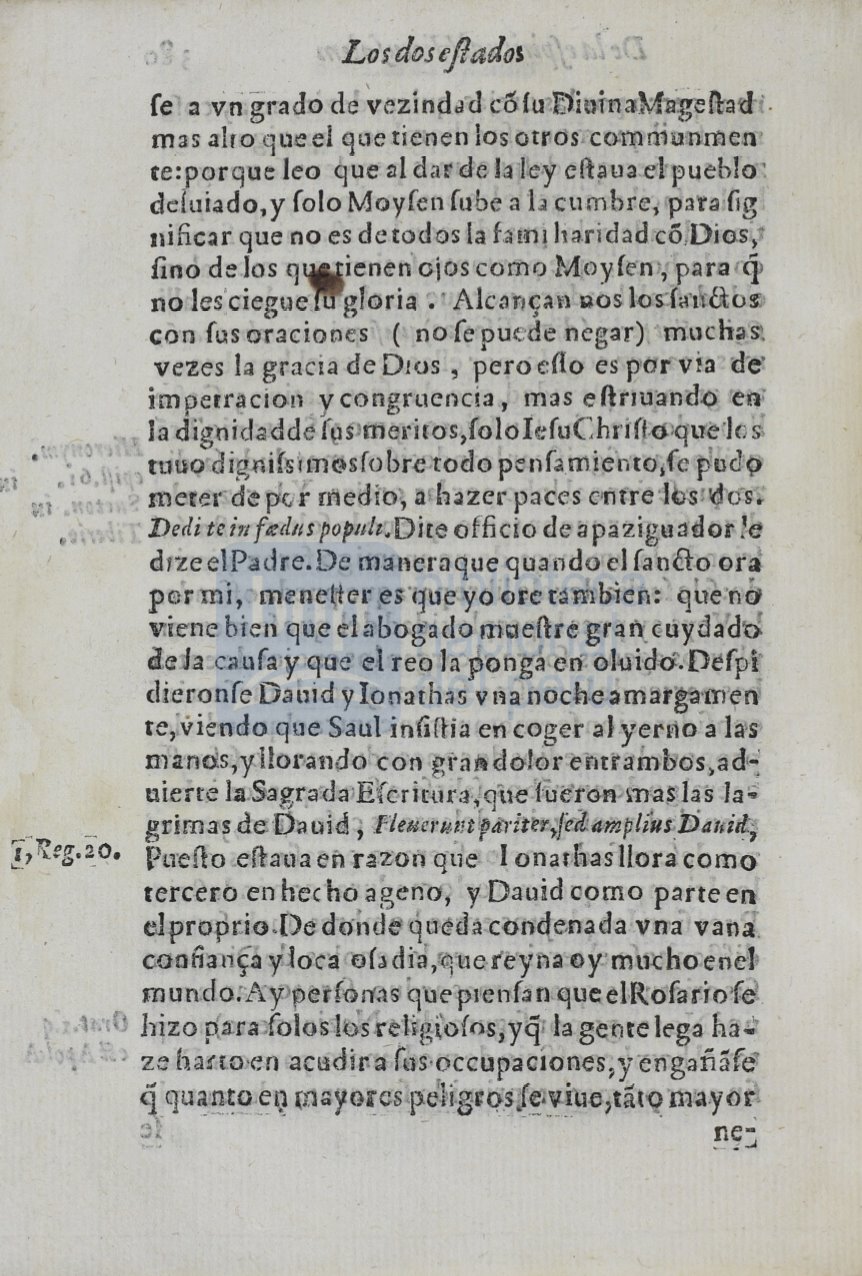 Los dos eſtados
ſe a vn grado de vezindad cõ ſu Diuina Mageſtad
mas alto que el que tienen los otros communmen
te: porque leo que al dar de la ley eſtaua el pueblo
deſuiado, y ſolo Moyſen ſube a la cumbre, para ſig
nificar que no es de todos la familiaridad cõ Dios,
ſino de los que tienen ojos como Moyſen, para q̃
no les ciegue ſu gloria. Alcançan nos los ſanctos
con ſus oraciones ( no ſe puede negar) muchas
vezes la gracia de Dios, pero eſto es por via de
impetracion y congruencia, mas eſtriuando en
la dignidad de ſus meritos, ſolo Ieſu Chriſto que los
tuuo digniſsimos ſobre todo penſamiento, ſe pudo
meter de por medio, a hazer paces entre los dos.
Dedi te in fœdus populi. Dite officio de apaziguador le
dize el Padre. De manera que quando el ſancto ora
por mi, meneſter es que yo ore tambien: que no
viene bien que el abogado mueſtre gran cuydado
de la cauſa y que el reo la ponga en oluido. Deſpi
dieronſe Dauid y Ionathas vna noche amargamen
te, viendo que Saul inſiſtia en coger al yerno a las
manos, y llorando con gran dolor entrambos, ad-
uierte la Sagrada Eſcritura, que fueron mas las la-
grimas de Dauid, Fleuerunt pariter, ſed amplius Dauid,
1, Reg. 20.
Pueſto eſtaua en razon que Ionathas llora como
tercero en hecho ageno, y Dauid como parte en
el proprio. De donde queda condenada vna vana
confiança y loca oſadia, que reyna oy mucho en el
mundo. Ay perſonas que pienſan que el Roſario ſe
hizo para ſolos los religioſos, y q̃ la gente lega ha-
ze harto en acudir a ſus occupaciones, y engañãſe
q̃ quanto en mayores peligros ſe viue, tãto mayor
ne-